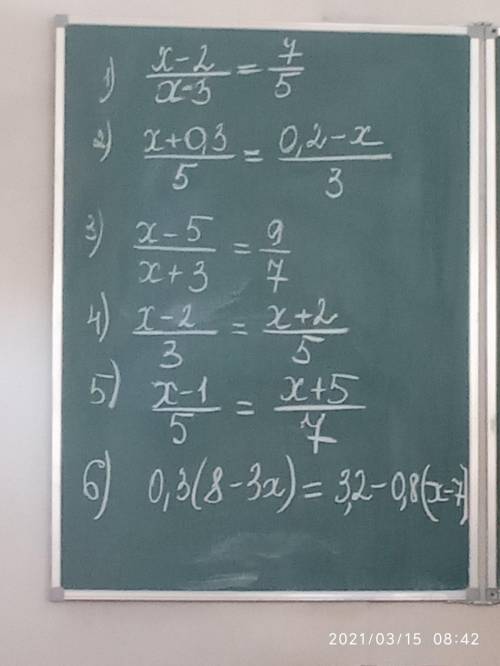 1) x-2/x-3 = 7/5
2) x+0,3/5 = 0,2-x/3
3) x-5/x+3 = 9/7
4) x-2/3 = x+2/5
5) x-1/5 = x+5/7
6) 0,3(8-3x)=3,2-0,8(x-7)
2021/03/15 08:42